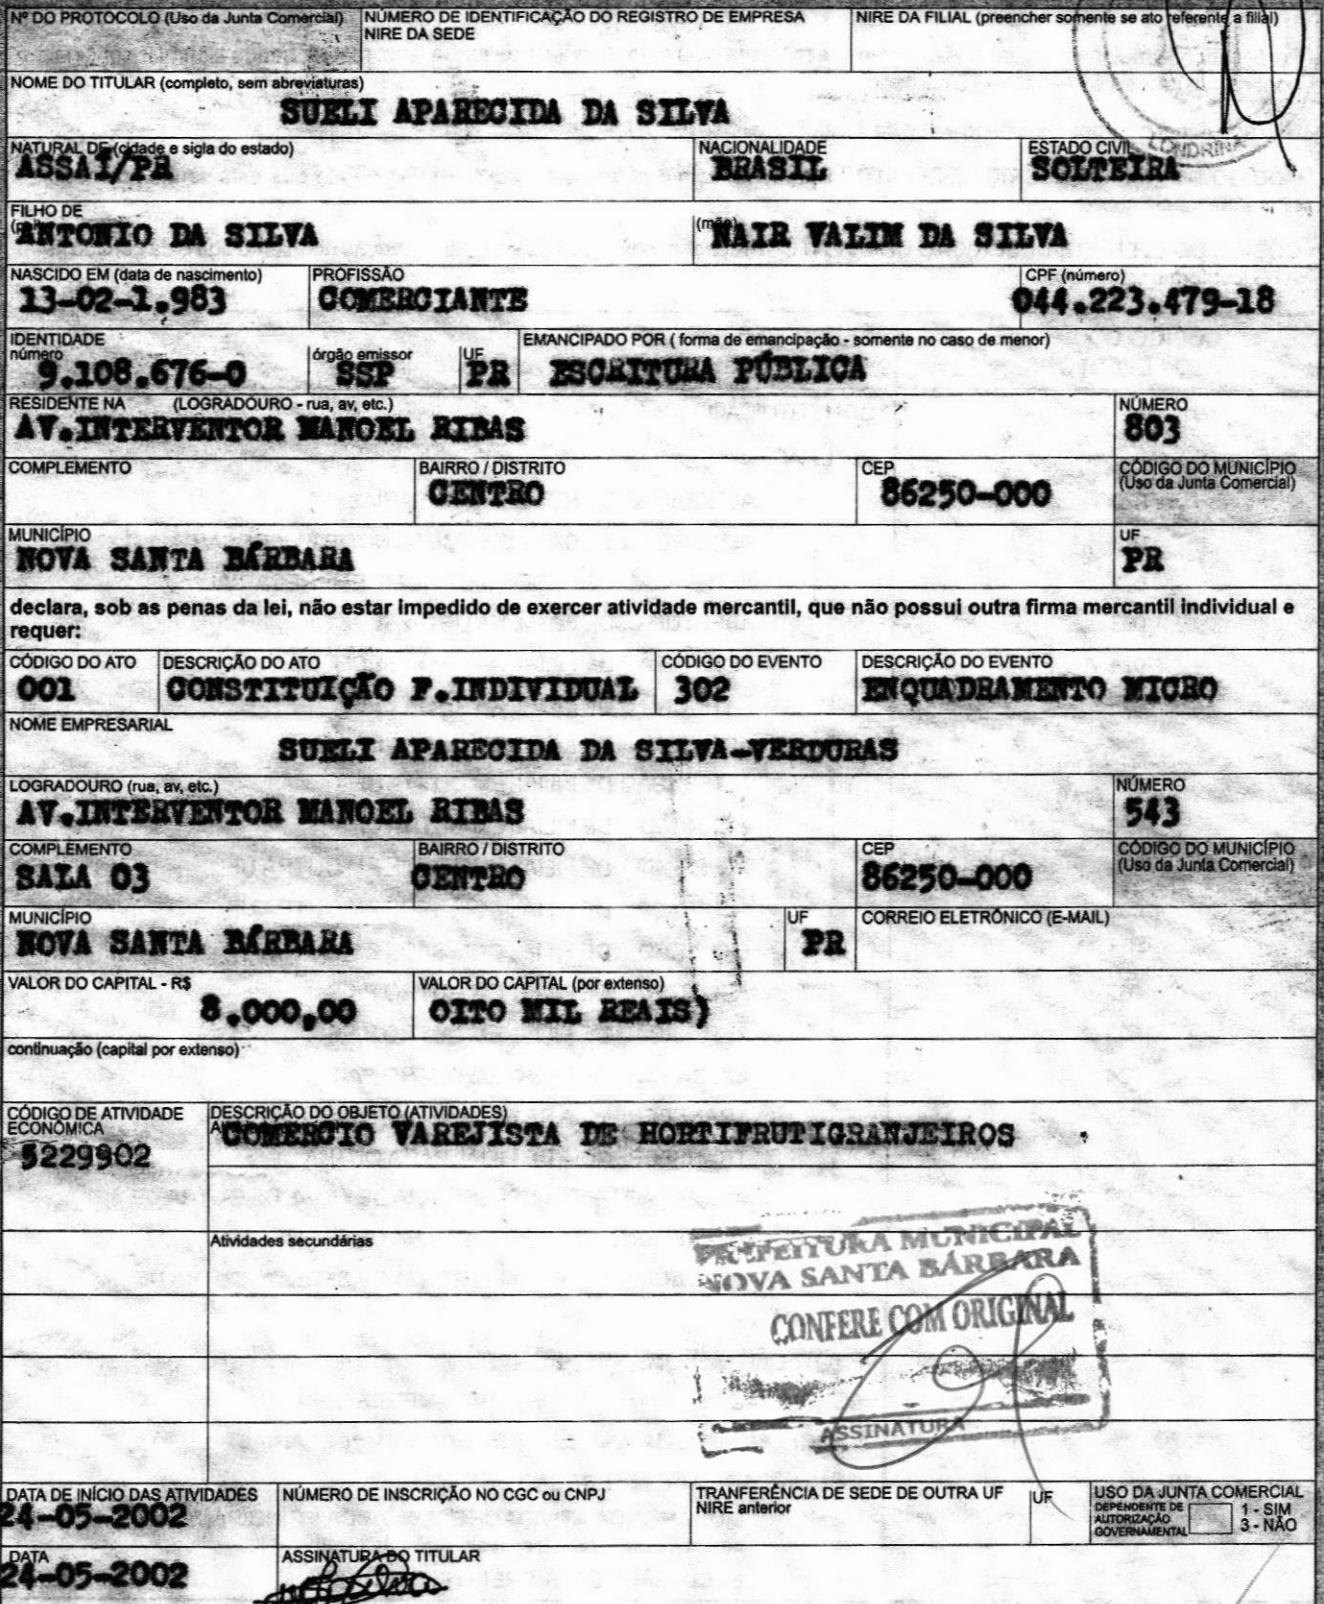 Nº DO PROTOCOLO (Uso da Junta Comercial)
NÚMERO DE IDENTIFICAÇÃO DO REGISTRO DE EMPRESA
NIRE DA SEDE
NIRE DA FILIAL (preencher somente se ato referente a filial)
NOME DO TITULAR (completo, sem abreviaturas)
SUELI APARECIDA DA SILVA
LONDRINA
NATURAL DE (cidade e sigla do estado)
ASSAÍ/PR
NACIONALIDADE
BRASIL
ESTADO CIVIL
SOLTEIRA
FILHO DE
ANTONIO DA SILVA
(mãe)
NAIR VALIM DA SILVA
NASCIDO EM (data de nascimento)
13-02-1.983
PROFISSÃO
COMERCIANTE
CPF (número)
044.223.479-18
IDENTIDADE
número
9.108.676-0
órgão emissor
SSP
UF
PR
EMANCIPADO POR ( forma de emancipação - somente no caso de menor)
ESCRITURA PÚBLICA
RESIDENTE NA (LOGRADOURO - rua, av, etc.)
AV.INTERVENTOR MANOEL RIBAS
NÚMERO
803
COMPLEMENTO
BAIRRO / DISTRITO
CENTRO
CEP
86250-000
CÓDIGO DO MUNICÍPIO
(Uso da Junta Comercial)
MUNICÍPIO
NOVA SANTA BÁRBARA
UF
PR
declara, sob as penas da lei, não estar impedido de exercer atividade mercantil, que não possui outra firma mercantil individual e
requer:
CÓDIGO DO ATO
001
DESCRIÇÃO DO ATO
CONSTITUIÇÃO F.INDIVIDUAL
CÓDIGO DO EVENTO
302
DESCRIÇÃO DO EVENTO
ENQUADRAMENTO MICRO
NOME EMPRESARIAL
SUELI APARECIDA DA SILVA-VERDURAS
LOGRADOURO (rua, av, etc.)
AV.INTERVENTOR MANOEL RIBAS
NÚMERO
543
COMPLEMENTO
SALA 03
BAIRRO / DISTRITO
CENTRO
CEP
86250-000
CÓDIGO DO MUNICÍPIO
(Uso da Junta Comercial)
MUNICÍPIO
NOVA SANTA BÁRBARA
UF
PR
CORREIO ELETRÔNICO (E-MAIL)
VALOR DO CAPITAL - R$
8.000,00
VALOR DO CAPITAL (por extenso)
OITO MIL REAIS)
continuação (capital por extenso)
CÓDIGO DE ATIVIDADE
ECONÔMICA
5229902
DESCRIÇÃO DO OBJETO (ATIVIDADES)
COMERCIO VAREJISTA DE HORTIFRUTIGRANJEIROS
Atividades secundárias
PREFEITURA MUNICIPAL
NOVA SANTA BÁRBARA
CONFERE COM ORIGINAL
ASSINATURA
DATA DE INÍCIO DAS ATIVIDADES
24-05-2002
NÚMERO DE INSCRIÇÃO NO CGC ou CNPJ
TRANFERÊNCIA DE SEDE DE OUTRA UF
NIRE anterior
UF
USO DA JUNTA COMERCIAL
DEPENDENTE DE
AUTORIZAÇÃO
GOVERNAMENTAL
1 - SIM
3 - NÃO
DATA
24-05-2002
ASSINATURA DO TITULAR